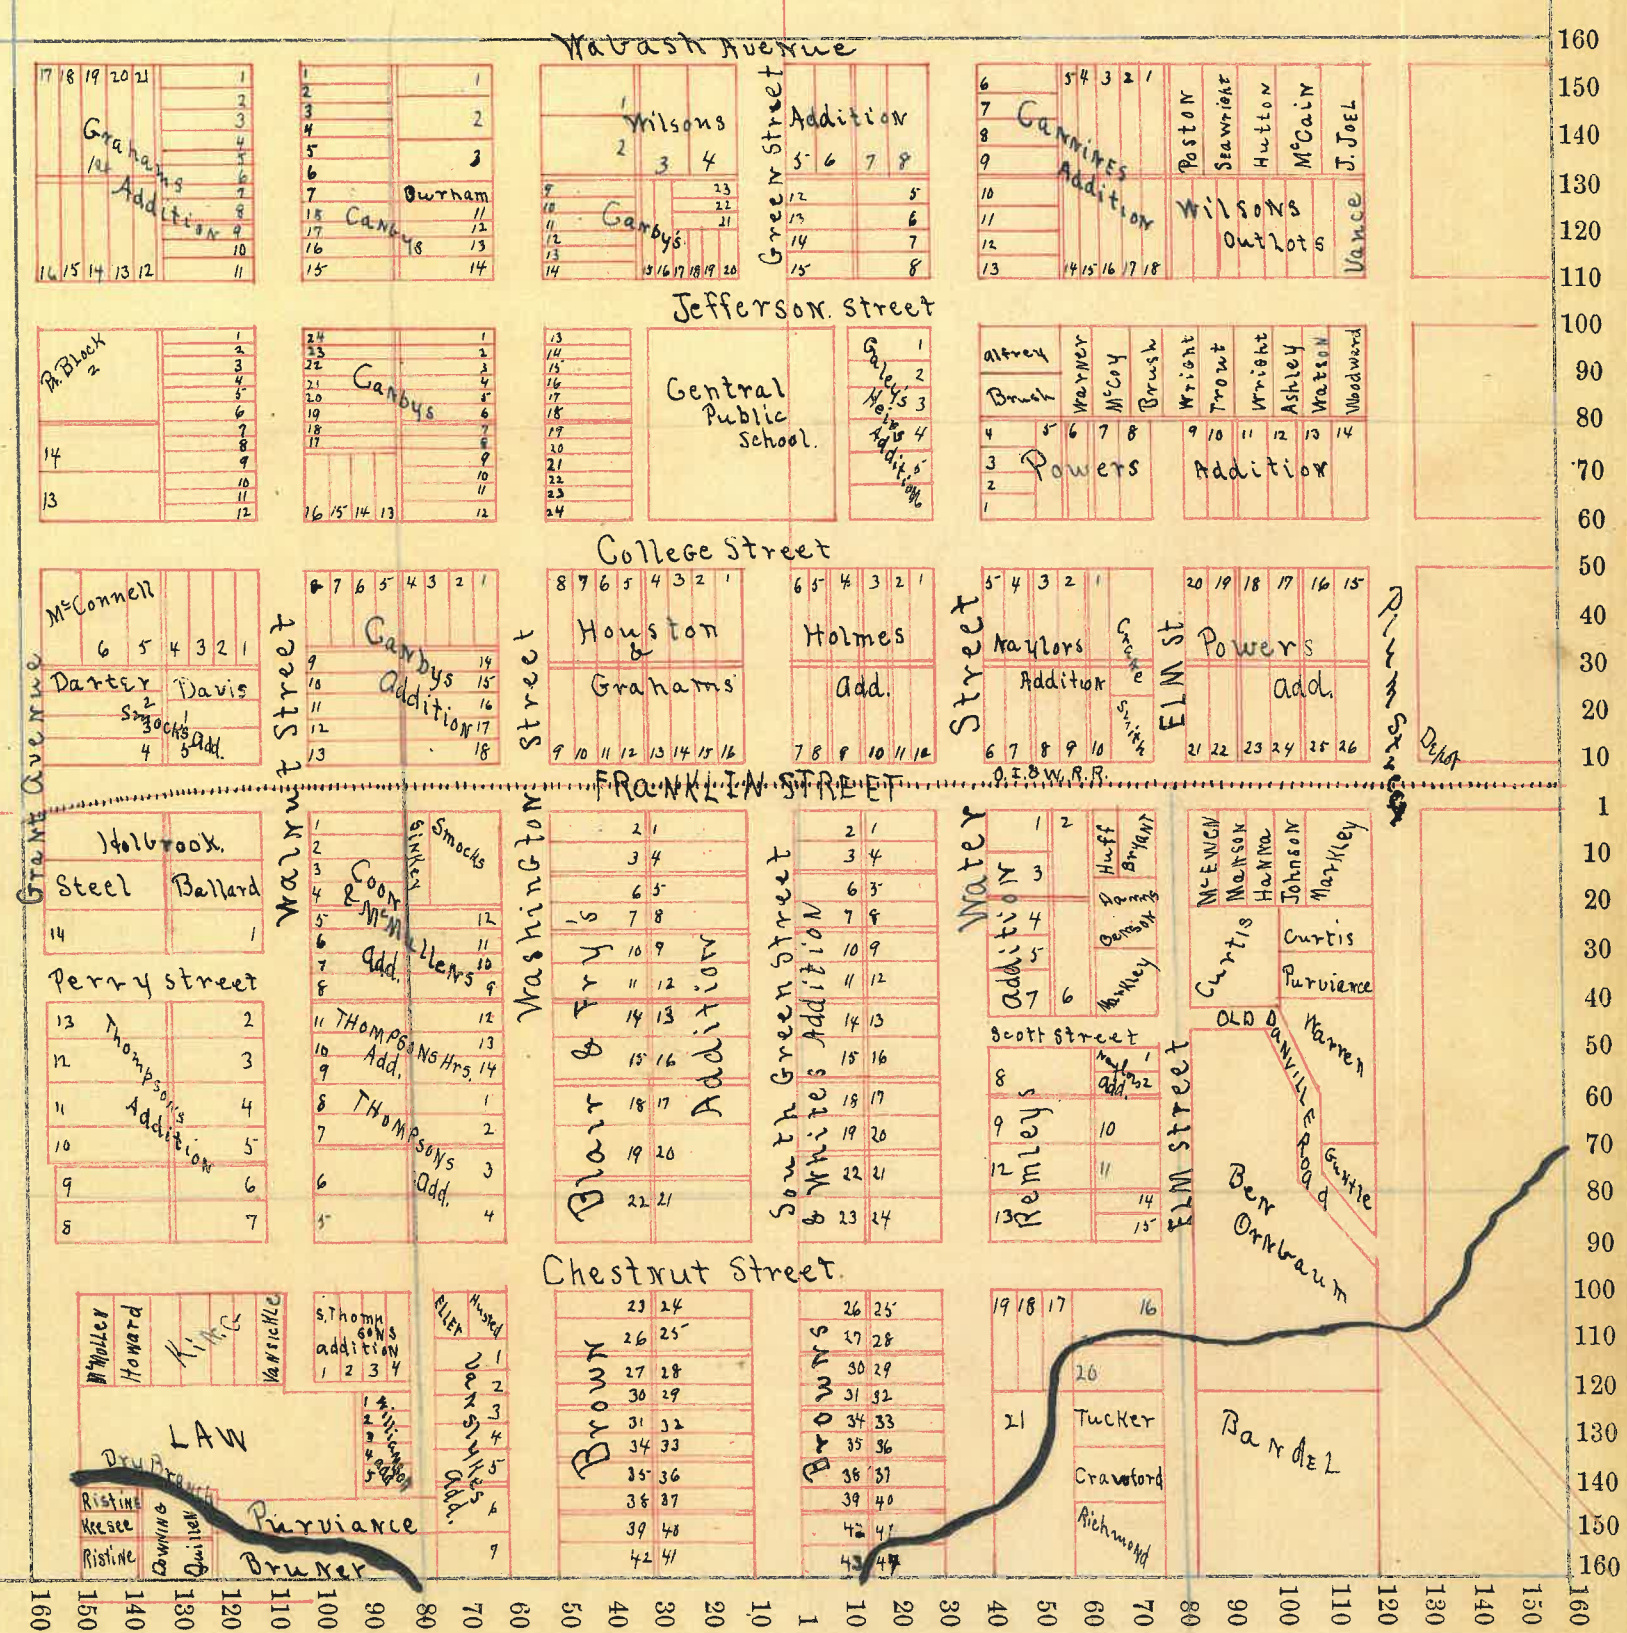 Wabash Avenue
160
17 18 19 20 21
Grahams
1st Addition
1
2
3
4
5
6
7
8
9
10
11
16 15 14 13 12
1
2
3
4
5
6
7
18
17
16
15
Canbys
1
2
3
Durham
11
12
13
14
1
2
Wilsons
3 4
9
10
11
12
13
14
Canby's
23
22
21
15 16 17 18 19 20
Green Street
Addition
5 6 7 8
12
13
14
15
5
6
7
8
6
7
8
9
10
11
12
13
5 4 3 2 1
Cannines
Addition
14 15 16 17 18
Poston
Seawright
Hutton
McCain
J. Joel
Wilsons
Outlots
Vance
150
140
130
120
110
Jefferson. Street
Pt. Block
2
14
13
1
2
3
4
5
6
7
8
9
10
11
12
24
23
22
21
20
19
18
17
Canbys
1
2
3
4
5
6
7
8
9
10
11
12
16 15 14 13
13
14
15
16
17
18
19
20
21
22
23
24
Central
Public
School.
Galey's
Heirs
Addition
1
2
3
4
5
6
Alfrey
Brush
Warner
McCoy
Brush
Wright
Trout
Wright
Ashley
Watson
Woodward
4
3
2
1
5 6 7 8
9 10 11 12 13 14
Powers Addition
100
90
80
70
60
College Street
McConnell
6 5 4 3 2 1
Darter
Davis
2
1
Smocks Add.
3
4 5
Grant Avenue
Walnut Street
8 7 6 5 4 3 2 1
Canbys
Addition
9
10
11
12
13
14
15
16
17
18
Street
8 7 6 5 4 3 2 1
Houston
&
Grahams
9 10 11 12 13 14 15 16
6 5 4 3 2 1
Holmes
Add.
7 8 9 10 11 12
Street
5 4 3 2 1
Naylors
Addition
Smith
6 7 8 9 10
ELM St
20 19 18 17 16 15
Powers
Add.
21 22 23 24 25 26
Plum Street
Depot
50
40
30
20
10
O.I.&W.R.R.
FRANKLIN STREET
1
Holbrook.
Steel
Ballard
14
1
Perry Street
13
12
11
10
9
8
Thompson's
Addition
2
3
4
5
6
7
Walnut Street
1
2
3
4
5
6
7
8
Coon
&
McMullens
Add.
Binken
Smocks
12
11
10
9
11
10
9
THOMPSONS Hrs.
Add.
12
13
14
8
7
6
5
THOMPSONS
Add.
1
2
3
4
Washington
Blair & Fry's
Addition
2 1
3 4
6 5
7 8
10 9
11 12
14 13
15 16
18 17
19 20
22 21
South Green Street
& Whites Addition
2 1
3 4
6 5
7 8
10 9
11 12
14 13
15 16
18 17
19 20
22 21
23 24
Water
1 2
3
4
5
7 6
Addition
Huff
Bryant
Markley
Scott Street
8
9
12
13
Remleys
Naylors
Add.
1
2
10
11
14
15
ELM Street
McEwen
Manson
Hanna
Johnson
Markley
Curtis
Curtis
Purviance
OLD DANVILLE ROAD
Warren
Guntle
Ben
Ornbaum
10
20
30
40
50
60
70
80
90
Chestnut Street.
McMullen
Howard
King
Vansickle
S. Thomp
sons
Addition
1 2 3 4
Eller
Husted
Vanslykes
Add.
1
2
3
4
5
6
7
LAW
1
2
3
4
5
Williamson
Add
Dry Branch
Ristine
Keesee
Ristine
Downing
Quillen
Purviance
Bruner
Brown
23 24
26 25
27 28
30 29
31 32
34 33
35 36
38 37
39 40
42 41
Browns
26 25
27 28
30 29
31 32
34 33
35 36
38 37
39 40
42 41
43 44
19 18 17 16
20
21
Tucker
Crawford
Richmond
Bandel
100
110
120
130
140
150
160
160 150 140 130 120 110 100 90 80 70 60 50 40 30 20 10 1 10 20 30 40 50 60 70 80 90 100 110 120 130 140 150 160